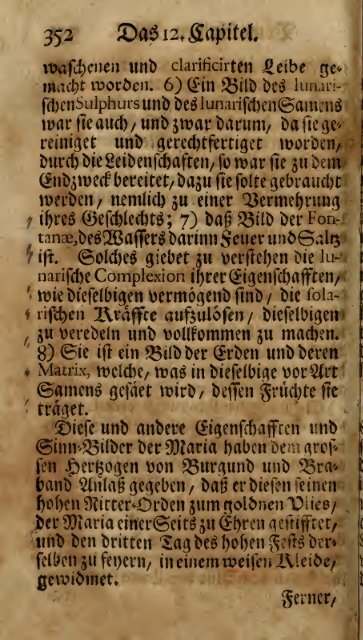 352 Das 12. Capitel.
waschenen und clarificirten Leibe ge-
macht worden. 6) Ein Bild des lunari-
schen Sulphurs und des lunarischen Samens
war sie auch, und zwar darum, da sie ge-
reiniget und gerechtfertiget worden,
durch die Leidenschaften, so war sie zu dem
Endzweck bereitet, dazu sie solte gebraucht
werden, nemlich zu einer Vermehrung
ihres Geschlechts; 7) daß Bild der Fon-
tanæ, des Wassers darinn Feuer und Saltz
ist. Solches giebet zu verstehen die lu-
narische Complexion ihrer Eigenschafften,
wie dieselbigen vermögend sind, die sola-
rischen Kräffte aufzulösen, dieselbigen
zu veredeln und vollkommen zu machen.
8) Sie ist ein Bild der Erden und deren
Matrix, welche, was in dieselbige vor Art
Samens gesäet wird, dessen Früchte sie
träget.
Diese und andere Eigenschafften und
Sinn-Bilder der Maria haben dem gros-
sen Hertzogen von Burgund und Bra-
band Anlaß gegeben, daß er diesen seinen
hohen Ritter-Orden zum goldnen Vlies,
der Maria einer Seits zu Ehren gestifftet,
und den dritten Tag des hohen Fests der-
selben zu feyern, in einem weisen Kleide,
gewidmet.
Ferner,